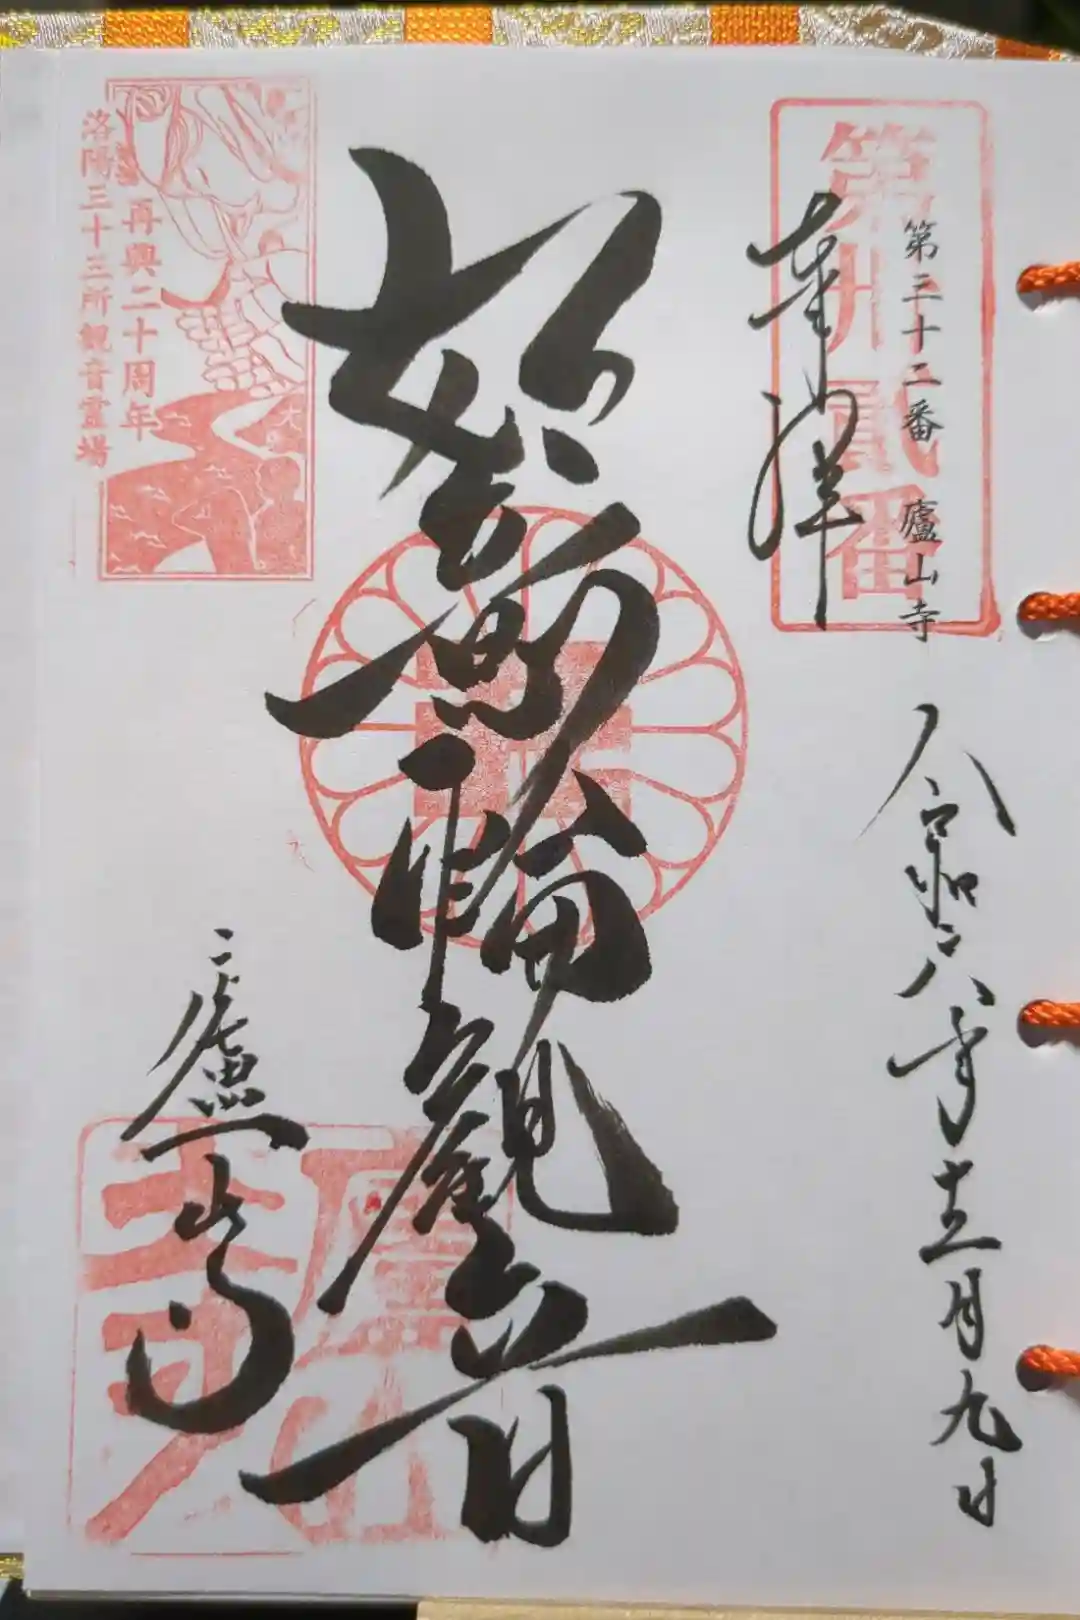 第卅貳番
第三十二番 廬山寺
奉拝
令和六年十二月九日
如意輪観音
廬山寺
廬山寺
再興二十周年
洛陽三十三所観音霊場